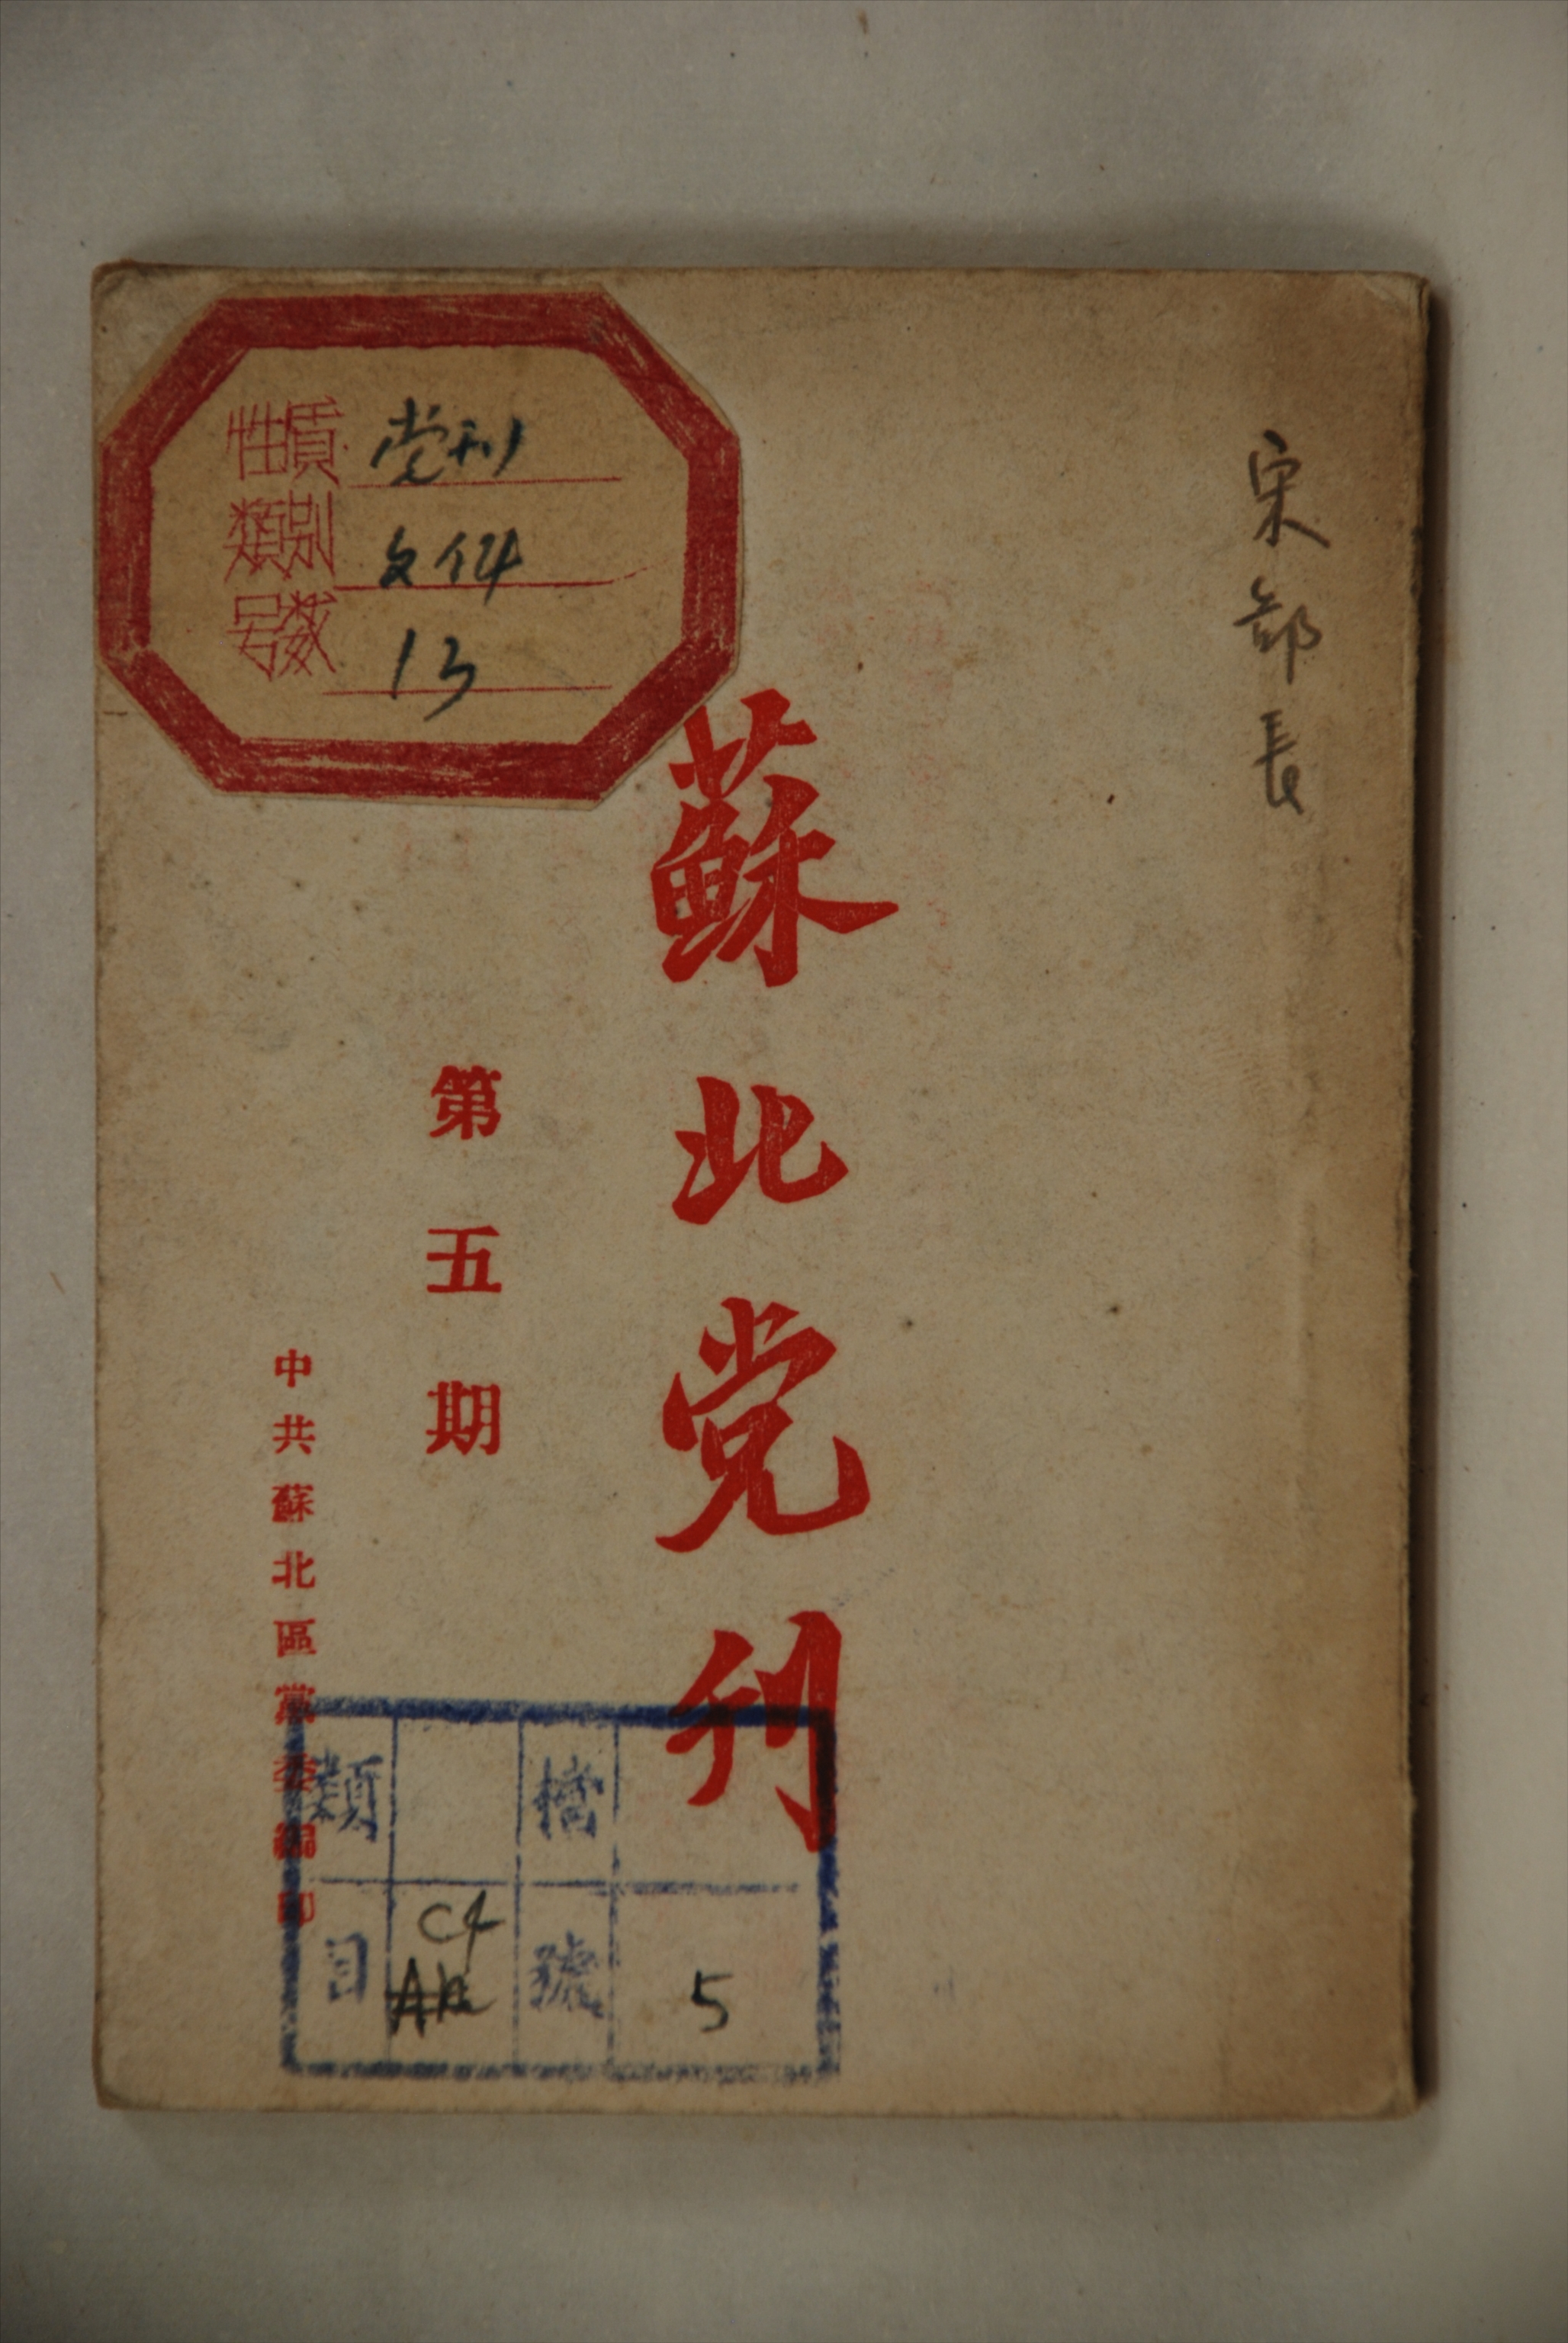 宋部長
蘇北党刊
第五期
中共蘇北區黨委編印
性質 党刊
類別 文件
号数 13
類目 C4
檔號 5